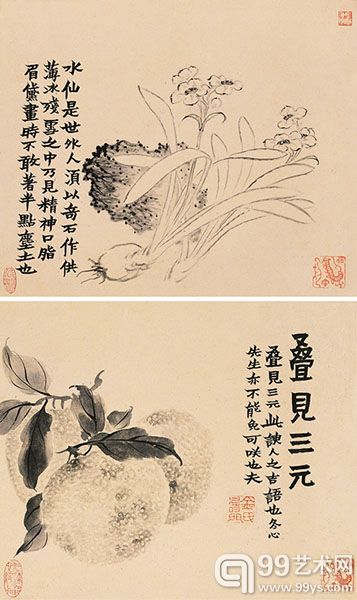 水仙是世外人須以奇石作供
薄冰殘雪之中乃見精神口脂
眉黛畫時不敢著半點塵土也
叠見三元
叠見三元此諛人之吉語也冬心
先生亦不能免可咲也夫
99艺术网
www.99ys.com